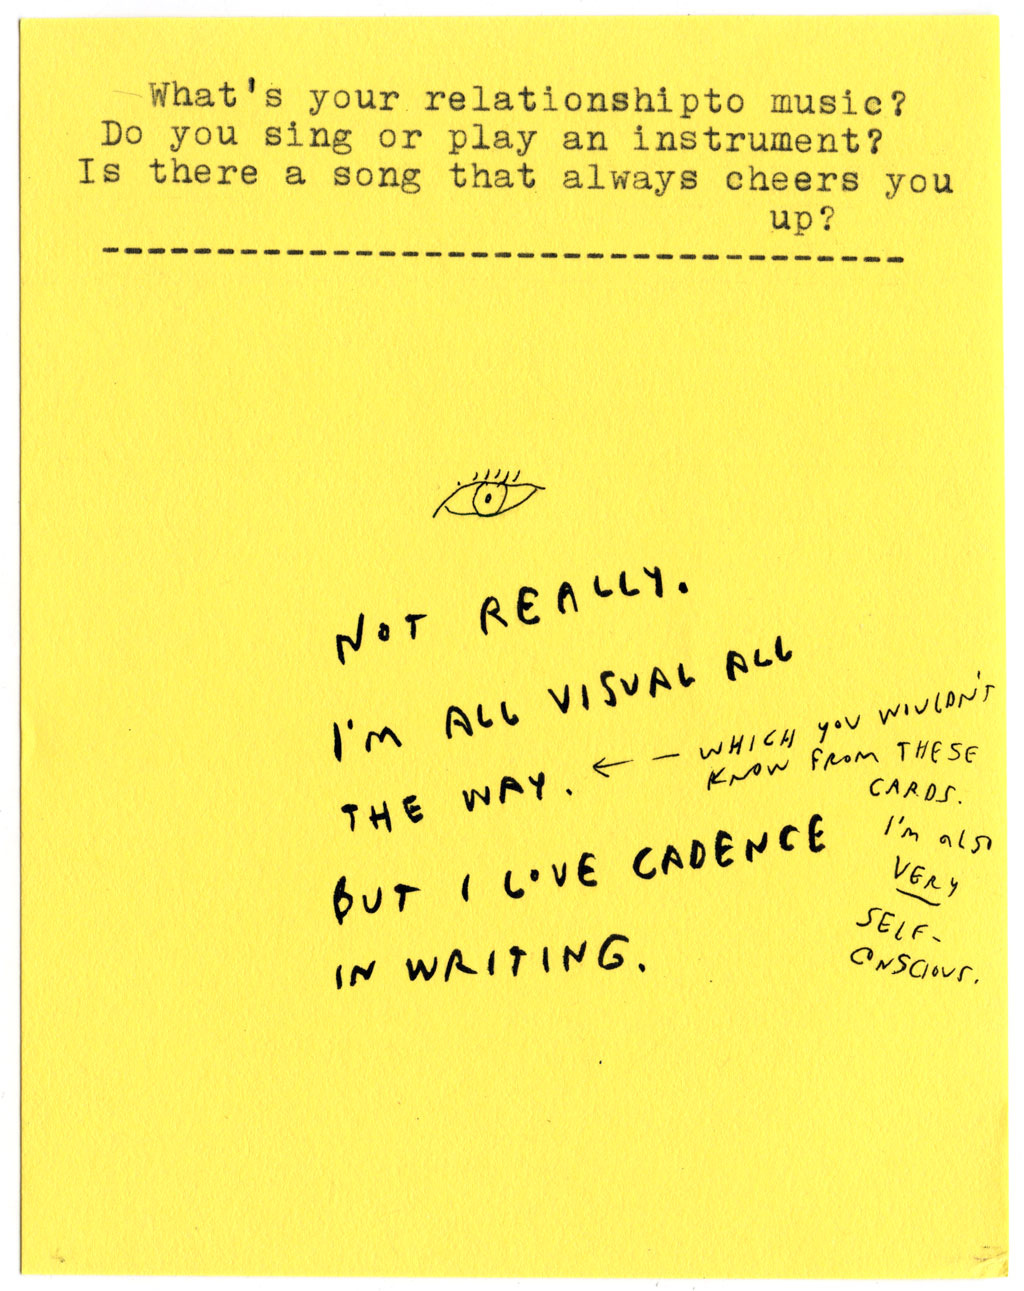 What's your relationshipto music?
Do you sing or play an instrument?
Is there a song that always cheers you
up?
-----------------------------------
NOT REALLY.
I'M ALL VISUAL ALL
THE WAY. ← — WHICH YOU WIULDN'T
KNOW FROM THESE
CARDS.
I'M also
VERY
SELF-
CONSCIOUS.
BUT I LOVE CADENCE
IN WRITING.